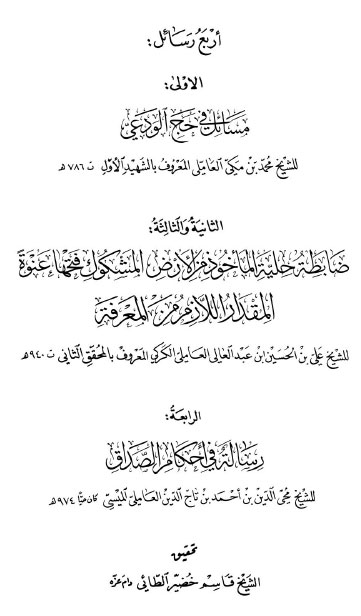 أربع رسائل:
الأولى:
مسائل في حج الودعيّ
للشيخ محمد بن مكي العاملي المعروف بالشهيد الأول ت ٧٨٦ هـ
الثانية والثالثة:
ضابطة حلية المأخوذ من الأرض المشكوك فتحها عنوة
المقدار اللازم من المعرفة
للشيخ علي بن الحسين ابن عبد العالي العاملي الكركي المعروف بالمحقق الثاني ت ٩٤٠ هـ
الرابعة:
رسالة في أحكام الصداق
للشيخ محيي الدين بن أحمد بن تاج الدين العاملي الميسي كان حيًا ٩٧٤ هـ
تحقيق
الشيخ قاسم خضير الطائي دام عزه